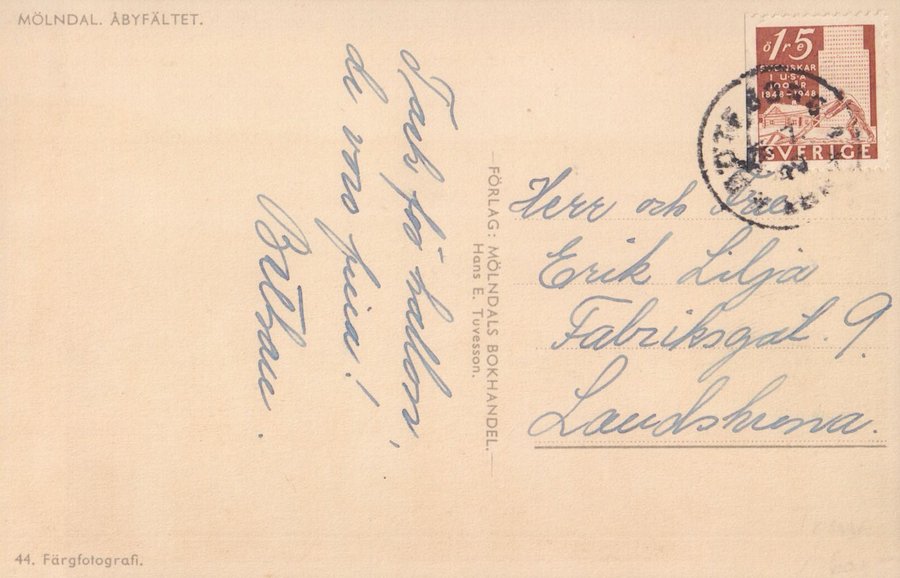 MÖLNDAL. ÅBYFÄLTET.
Tack för hallon,
de voro fina!
öre 15
SVENSKAR
I U.S.A
100 ÅR
1848-1948
SVERIGE
GÖTEBORG
FÖRLAG: MÖLNDALS BOKHANDEL.
Hans E. Tuvesson.
Herr och Fru
Erik Lilja
Fabriksgat. 9.
Landskrona.
44. Färgfotografi.